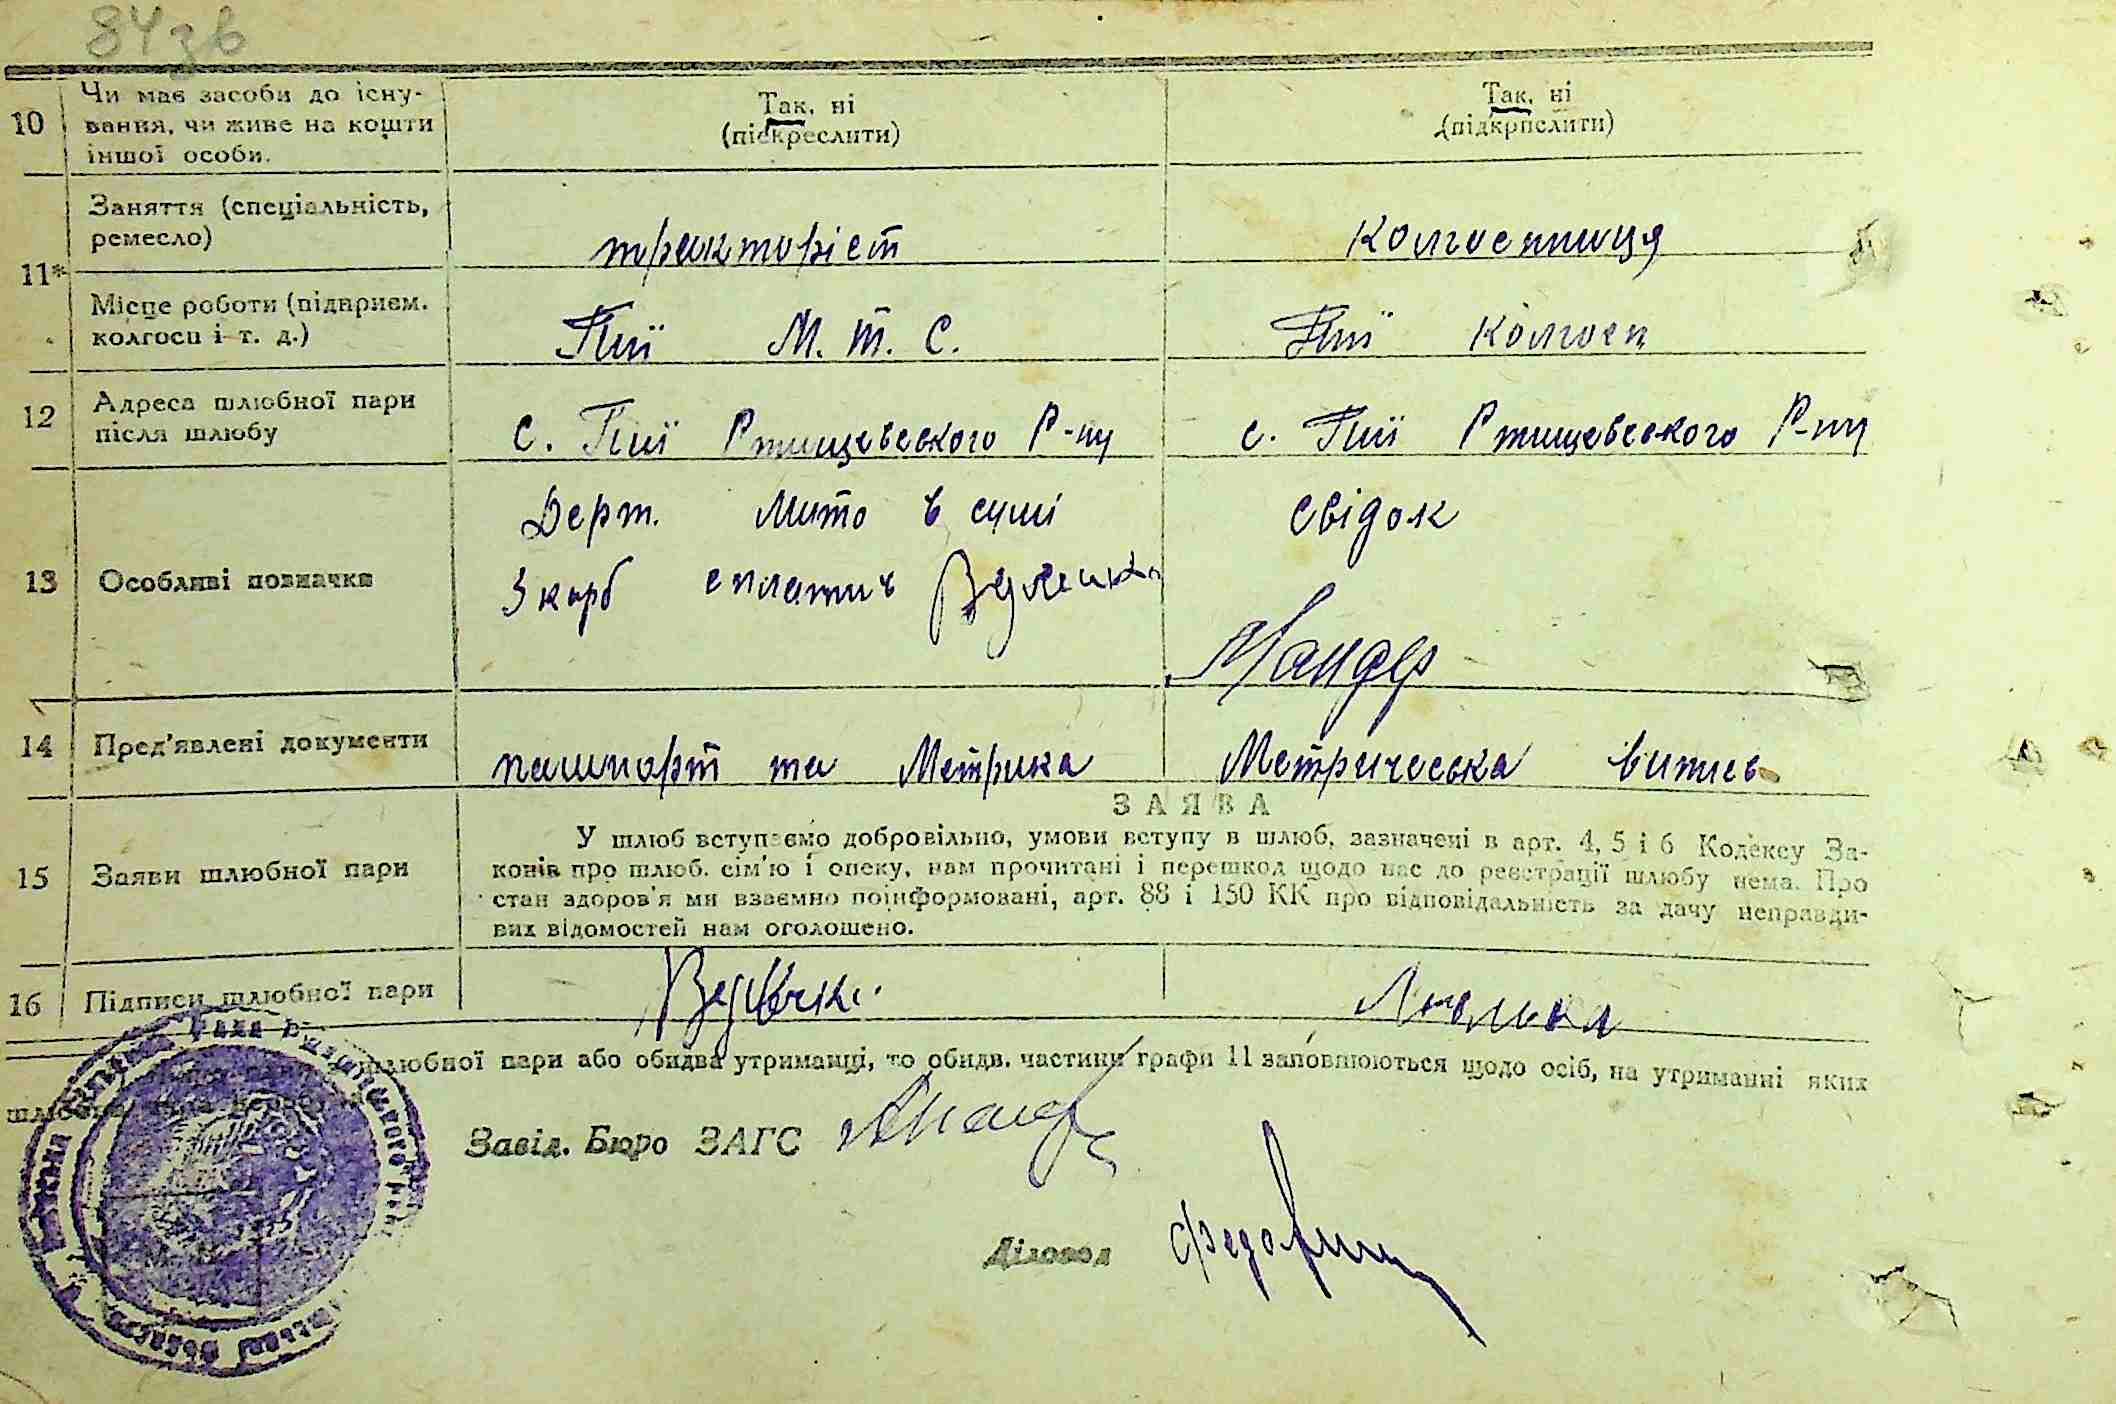 84 зв
10 Чи має засоби до існу- Так, ні Так, ні
вання, чи живе на кошти (підкреслити) (підкрпслити)
іншої особи.
Заняття (спеціальність, тракторіст колгоспниця
ремесло)
11*
Місце роботи (підприєм. Пії М. Т. С. Пії колгосп
колгосп і т. д.)
12 Адреса шлюбної пари с. Пії Ртищевського Р-ну с. Пії Ртищевського Р-ну
після шлюбу
Держ. мито в сумі свідок
13 Особливі позначки 3 карб сплатив
14 Пред'явлені документи пашпорт та Метрика Метрическа витись
ЗАЯВА
15 Заяви шлюбної пари У шлюб вступаємо добровільно, умови вступу в шлюб, зазначені в арт. 4, 5 і 6 Кодексу За-
конів про шлюб. сім'ю і опеку, нам прочитані і перешкод щодо нас до реєстрації шлюбу нема. Про
стан здоров'я ми взаємно поінформовані, арт. 88 і 150 КК про відповідальність за дачу неправди-
вих відомостей нам оголошено.
16 Підписи шлюбної пари
шлюбної пари або обидва утриманці, то обидв. частини графи 11 заповнюються щодо осіб, на утриманні яких
Завід. Бюро ЗАГС
Діловод